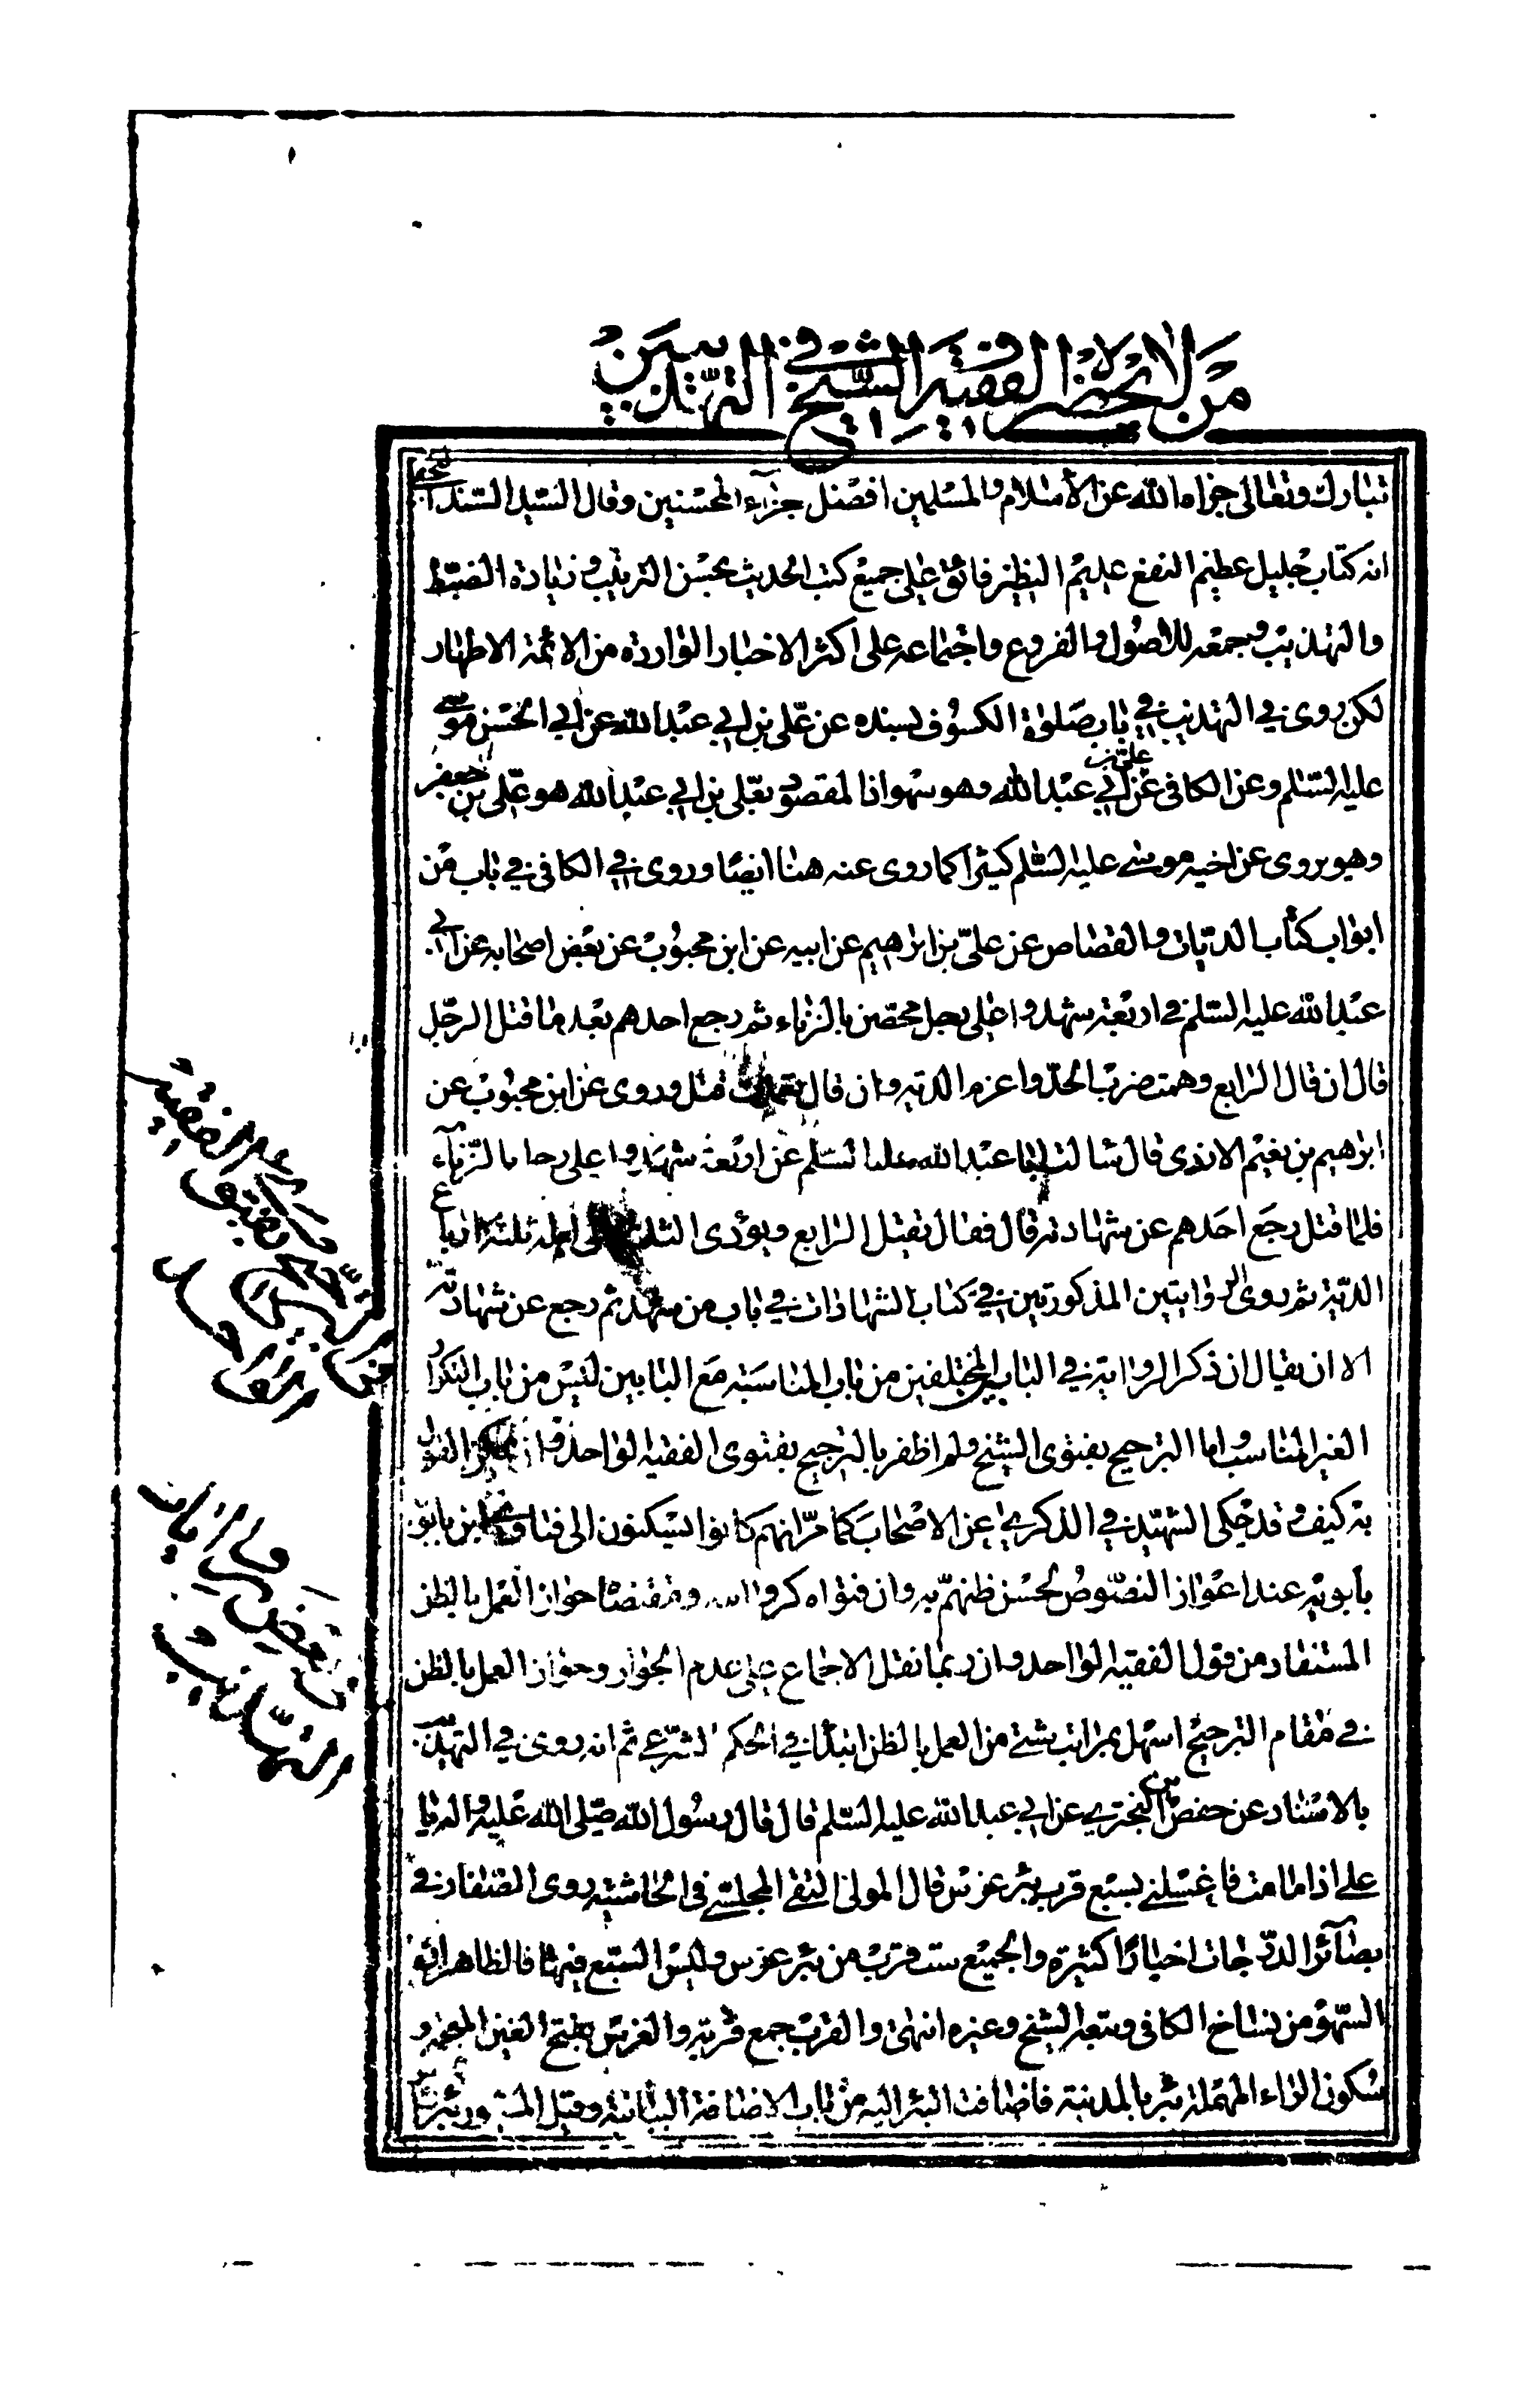 من لا يحضر الفقيه الشيخ في التهذيبين
تبارك وتعالى جزاه الله عن الأسلام والمسلمين افضل جزآء المحسنين وقال السيد السند النجم
انه كتاب جليل عظيم النفع عديم النظير فائق على جميع كتب الحديث بحسن الترتيب وزيادة الضبط
والتهذيب وجمعه للاصول والفروع واجتماعه على اكثر الاخبار الواردة من الائمة الاطهار
لكن روى في التهذيب في باب صلوة الكسوف بسنده عن علي بن ابي عبد الله عن ابي الحسن موسى
عليه السلم وعن الكافي عن علي بن ابي عبد الله وهو سهو اذ المقصود بعلي بن ابي عبد الله هو علي بن جعفر
وهو يروى عن اخيه موسى عليه السلم كثيرا كما روى عنه هنا ايضا وروى في الكافي في باب من
ابواب كتاب الديات والقصاص عن علي بن ابراهيم عن ابيه عن ابن محبوب عن بعض اصحابه عن ابي
عبد الله عليه السلم في اربعة شهدوا على رجل محصن بالزناء ثم رجع احدهم بعد ما قتل الرجل
قال ان قال الرابع وهمت ضرب الحد واغرم الدية وان قال تعمدت قتل وروى عن ابن محبوب عن
ابراهيم بن نعيم الازدى قال سالت ابا عبد الله عليه السلم عن اربعة شهدوا على رجل بالزناء
فلما قتل رجع احدهم عن شهادته قال فقال يقتل الرابع ويؤدى الثلثة الى اهله ثلثة ارباع
الدية ثم روى الروايتين المذكورتين في كتاب الشهادات في باب من شهد ثم رجع عن شهادته
الا ان يقال ان ذكر الرواية في البابين المختلفين من باب المناسبة مع البابين ليس من باب التكرار
الغير المناسب واما الترجيح بفتوى الشيخ ولم اظفر بالترجيح بفتوى الفقيه الواحد القول
به كيف وقد حكى الشهيد في الذكرى عن الاصحاب كما مر انهم كانوا يسكنون الى فتاوى ابن بابويه
بابويه عند اعواز النصوص لحسن ظنهم به وان فتواه كروايته ومقتضاه جواز العمل بالظن
المستفاد من قول الفقيه الواحد وان ربما نقل الاجماع على عدم الجواز وجواز العمل بالظن
في مقام الترجيح اسهل بمراتب شتى من العمل بالظن ابتدا في الحكم الشرعي ثم انه روى في التهذيب
بالاسناد عن حفص بن البختري عن ابي عبد الله عليه السلم قال قال رسول الله صلى الله عليه واله يا
علي اذا انا مت فاغسلني بسبع قرب بئر غرس قال المولى التقي المجلسي في الحاشية روى الصفار في
بصآئر الدرجات اخبارا كثيرة والجميع ست قرب من بئر غرس وليس السبع فيها فالظاهر انه
السهو من نساخ الكافي وتبعه الشيخ وغيره انتهى والقرب جمع قربة والغرس بفتح الغين المعجمة و
سكون الراء المهملة بئر بالمدينة فاضافة البئر اليه من باب الاضافة البيانية وقيل